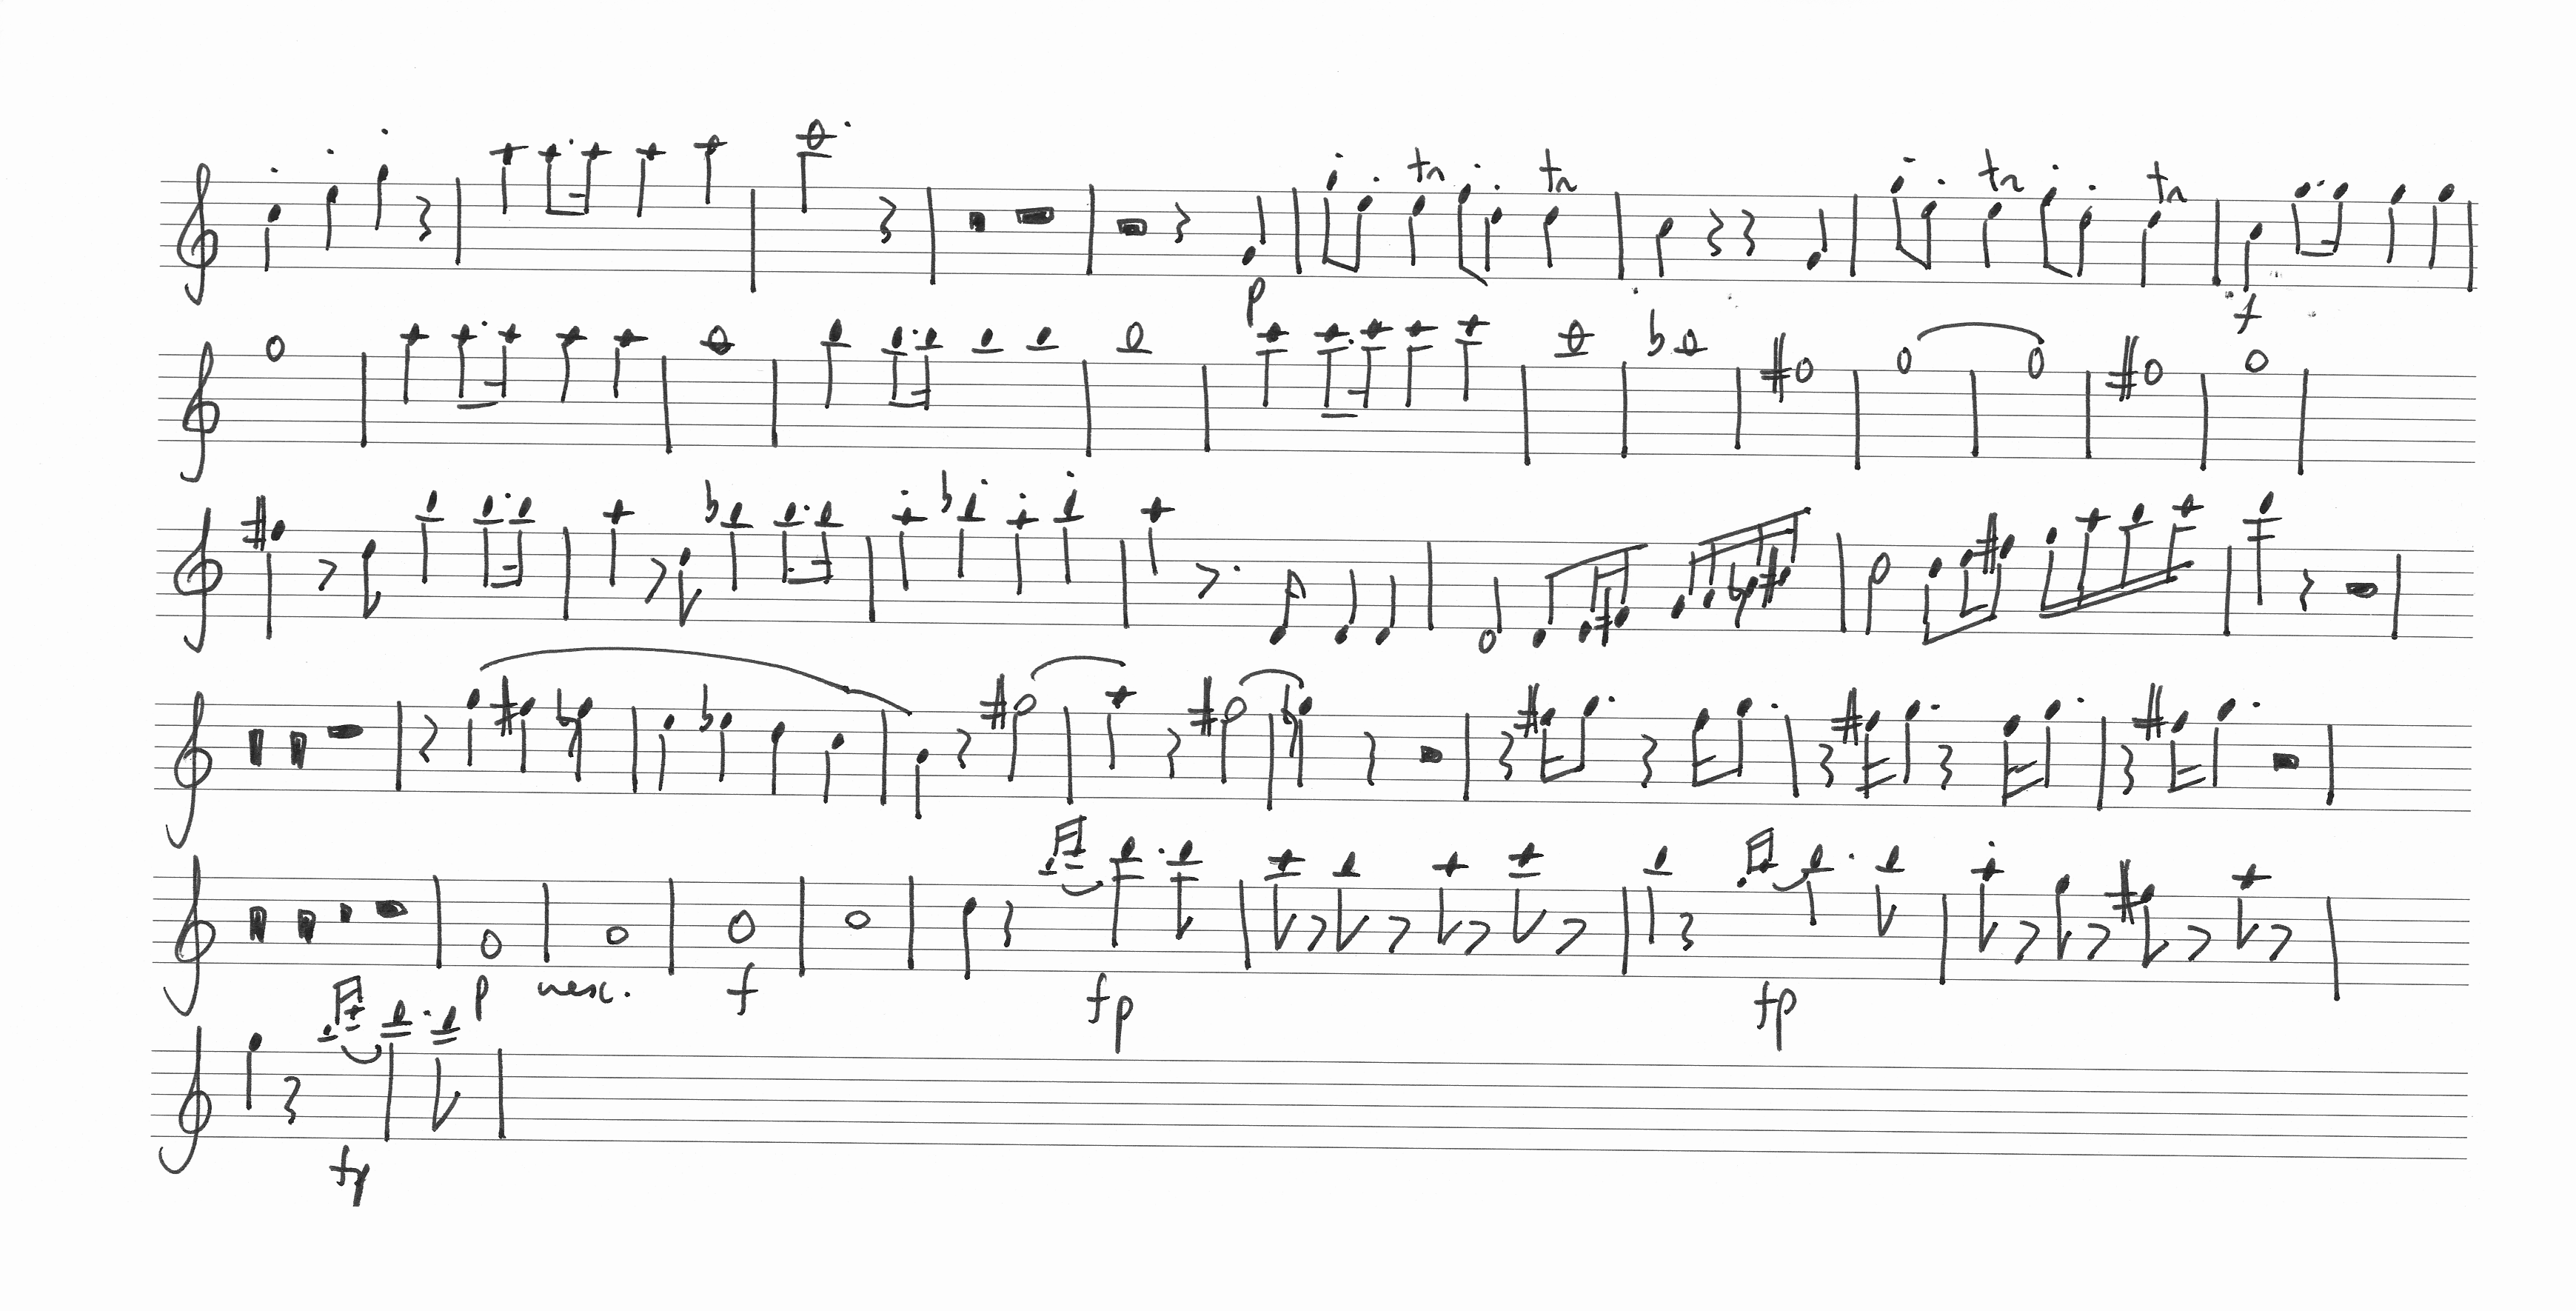 tr tr tr tr
p f
p cresc. f fp fp
fp